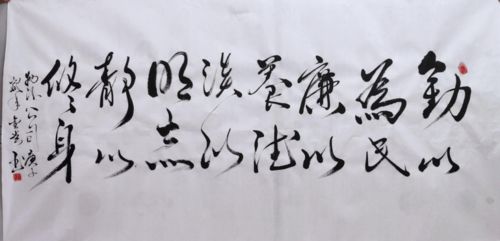 勤以
為民
廉以
養德
淡以
明志
靜以
修身
庚子